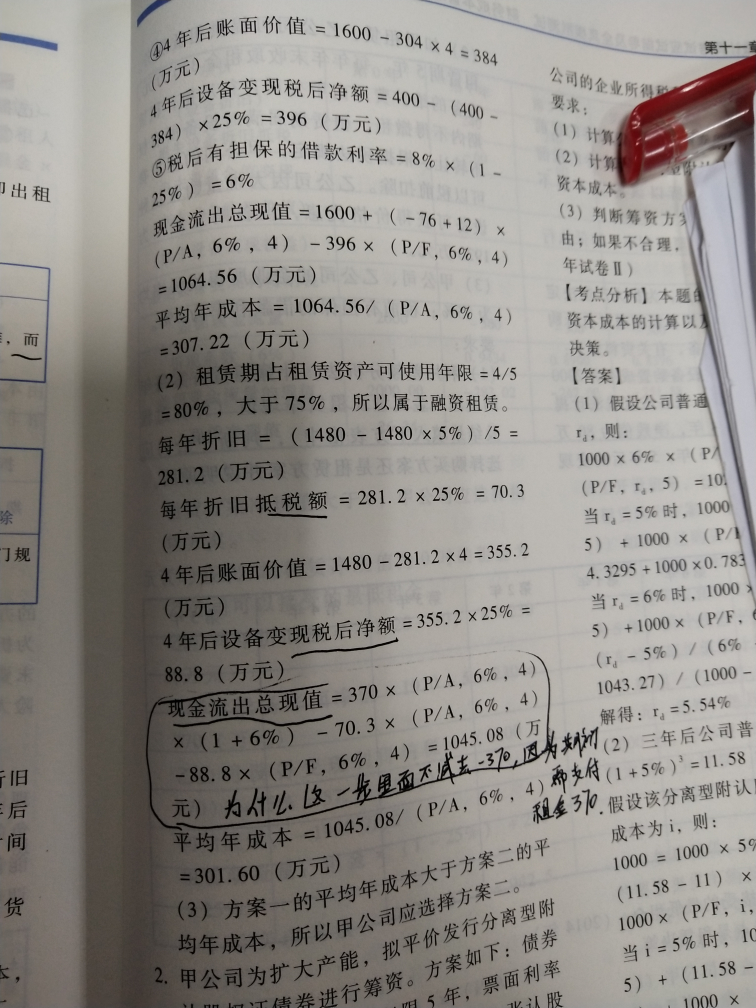 ④4年后账面价值=1600-304×4=384
(万元)
4年后设备变现税后净额=400-(400-
384)×25%=396(万元)
⑤税后有担保的借款利率=8%×(1-
25%)=6%
现金流出总现值=1600+(-76+12)×
(P/A,6%,4)-396×(P/F,6%,4)
=1064.56(万元)
平均年成本=1064.56/(P/A,6%,4)
=307.22(万元)
(2)租赁期占租赁资产可使用年限=4/5
=80%,大于75%,所以属于融资租赁。
每年折旧=(1480-1480×5%)/5=
281.2(万元)
每年折旧抵税额=281.2×25%=70.3
(万元)
4年后账面价值=1480-281.2×4=355.2
(万元)
4年后设备变现税后净额=355.2×25%=
88.8(万元)
现金流出总现值=370×(P/A,6%,4)
×(1+6%)-70.3×(P/A,6%,4)
-88.8×(P/F,6%,4)=1045.08(万
元)
为什么这一步里面不减去-370,因为期初
需支付
租金370.
平均年成本=1045.08/(P/A,6%,4)
=301.60(万元)
(3)方案一的平均年成本大于方案二的平
均年成本,所以甲公司应选择方案二。
2.甲公司为扩大产能,拟平价发行分离型附
认股权证债券进行筹资。方案如下:债券
限5年,票面利率
张认股
第十一章
公司的企业所得税
要求:
(1)计算
(2)计算
资本成本。
(3)判断筹资方
由;如果不合理,
年试卷Ⅱ)
【考点分析】本题
资本成本的计算以及
决策。
【答案】
(1)假设公司普通
r_d,则:
1000×6%×(P/
(P/F,r_d,5)=10
当r_d=5%时,1000
5)+1000×(P/
4.3295+1000×0.783
当r_d=6%时,1000×
5)+1000×(P/F,6
(r_d-5%)/(6%
1043.27)/(1000-
解得:r_d=5.54%
(2)三年后公司普
(1+5%)³=11.58
假设该分离型附认
成本为i,则:
1000=1000×5%
(11.58-11)×
1000×(P/F,i,
当i=5%时,10
5)+(11.58-
1000×
即出租
,而
除
门规
折旧
年后
时间
货
本,